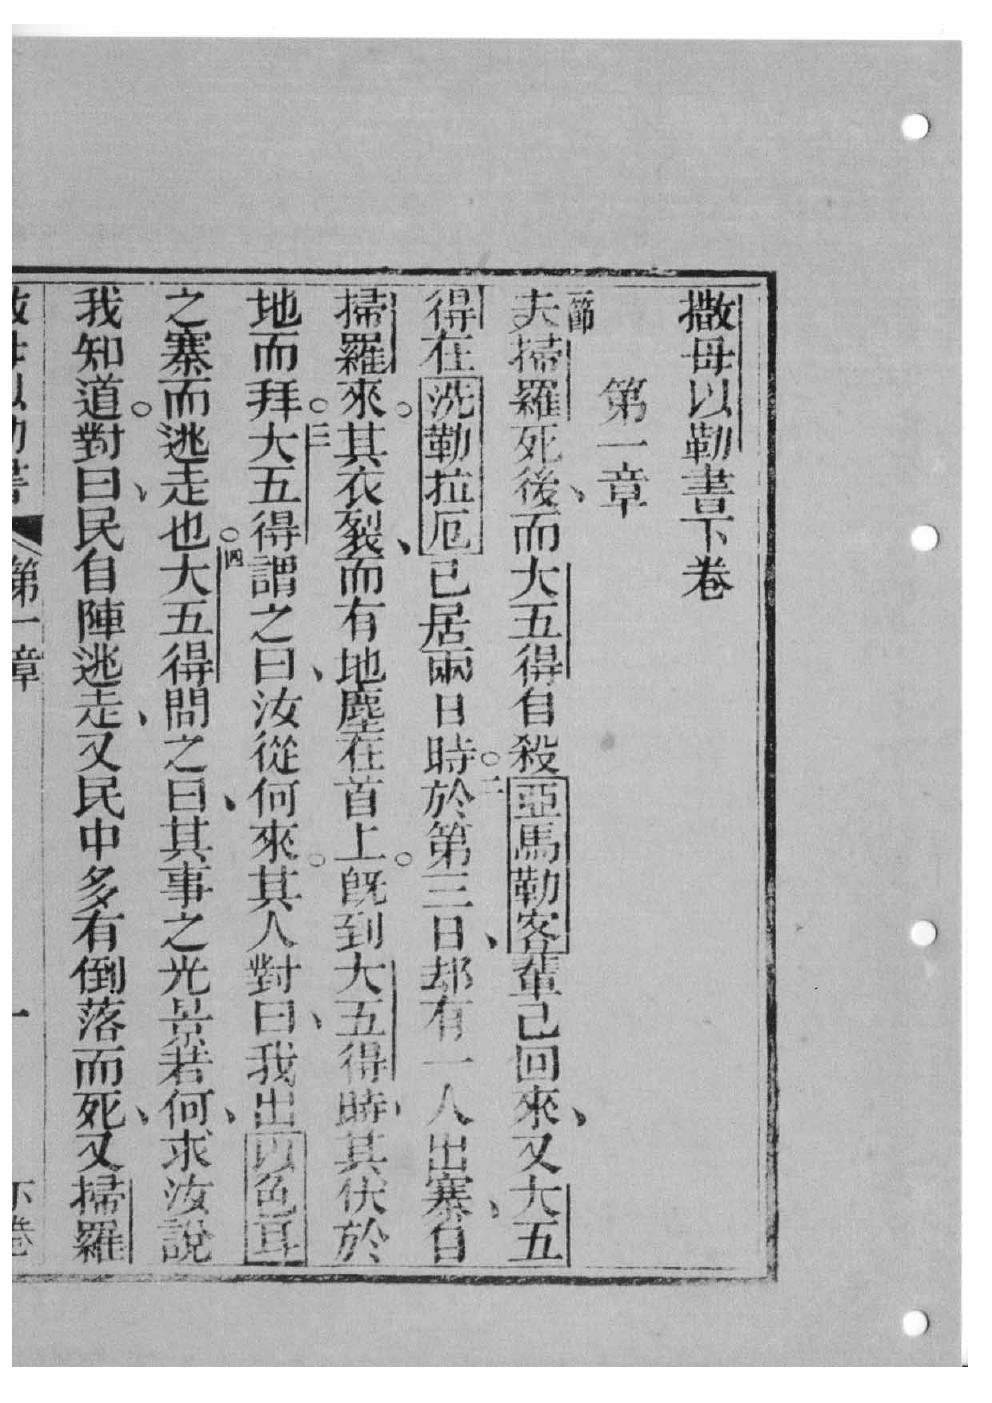 撒母以勒書下卷
第一章
一節夫掃羅死後、而大五得自殺亞馬勒客輩己回來、又大五
得在洗勒拉厄已居兩日時。二於第三日、却有一人出寨、自
掃羅來。其衣裂、而有地塵在首上。旣到大五得時、其伏於
地而拜。三大五得謂之曰、汝從何來。其人對曰、我出以色耳
之寨而逃走也。四大五得問之曰、其事之光景若何、求汝說
我知道。對曰、民自陣逃走、又民中多有倒落而死、又掃羅
第一章 一 下卷